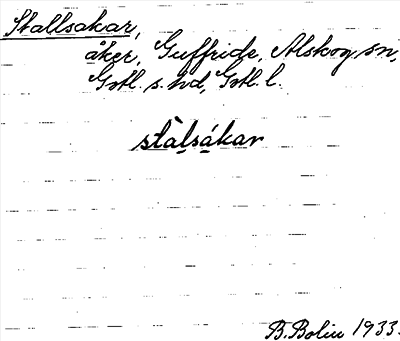 Stallsakar,
åker, Guffride, Alskog sn,
Gotl. s. hd, Gotl. l.
stàlsákar
B. Bolin 1933.